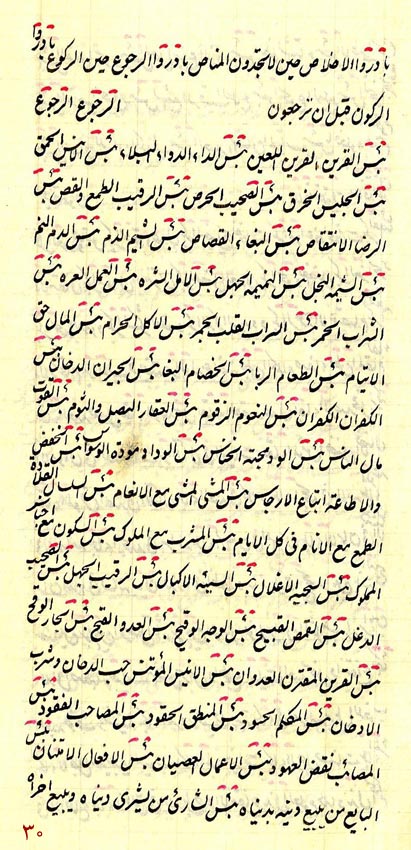 بادروا الاخلاص حين لا تجدون المناص بادروا الرجوع حين الركوع بادروا
الركون قبل ان ترجعون الرجوع الرجوع
بئس القرين القرين اللعين بئس الداء الدواء البلاء بئس الانيس الحمق
بئس الجليس الخرق بئس الصحيب الحرص بئس الرقيب الطمع والقص بئس
الرضا الانتقاص بئس البغاء القصاص بئس الشيم الذم بئس الدم النم
بئس الشيمة البخل بئس النميمة الجهل بئس الامل الشره بئس العمل العره بئس
الشراب الخمر بئس التراب القلب الحجر بئس الاكل الحرام بئس المال حق
الايتام بئس الطعام الربا بئس الخصام البغا بئس الجيران الدخان بئس
الكفران الكفران بئس النعوم الزقوم بئس العقار البصل والثوم بئس القوت
مال الناس بئس الود محبة الخناس بئس الوداد مودة الوسواس بئس الخفض
والاطاعة اتباع الارجاس بئس المشى المشى مع الانعام بئس القلادة
الطمع مع الانام فى كل الايام بئس المشرب مع الملوك بئس السكون مع اجناز
الملوك بئس السجية الاغلال بئس السيئة الاكبال بئس الرقيب الجهل بئس الصحيب
الدغل بئس القمص القبيح بئس الوجه الوقيح بئس العدو القبح بئس الجار الوقح
بئس القرين المقترن العدوان بئس الانيس المؤتنس حب الدخان وشرب
الادخان بئس المتكلم الحسود بئس المنطق الحقود بئس المصاحب الفقود بئس
المصائب نقض العهود بئس الاعمال العصيان بئس الافعال الامتنان بئس
البايع من يبيع دينه بدنياه بئس الشارى من يشرى دنياه ويبيع اخراه
٣٠